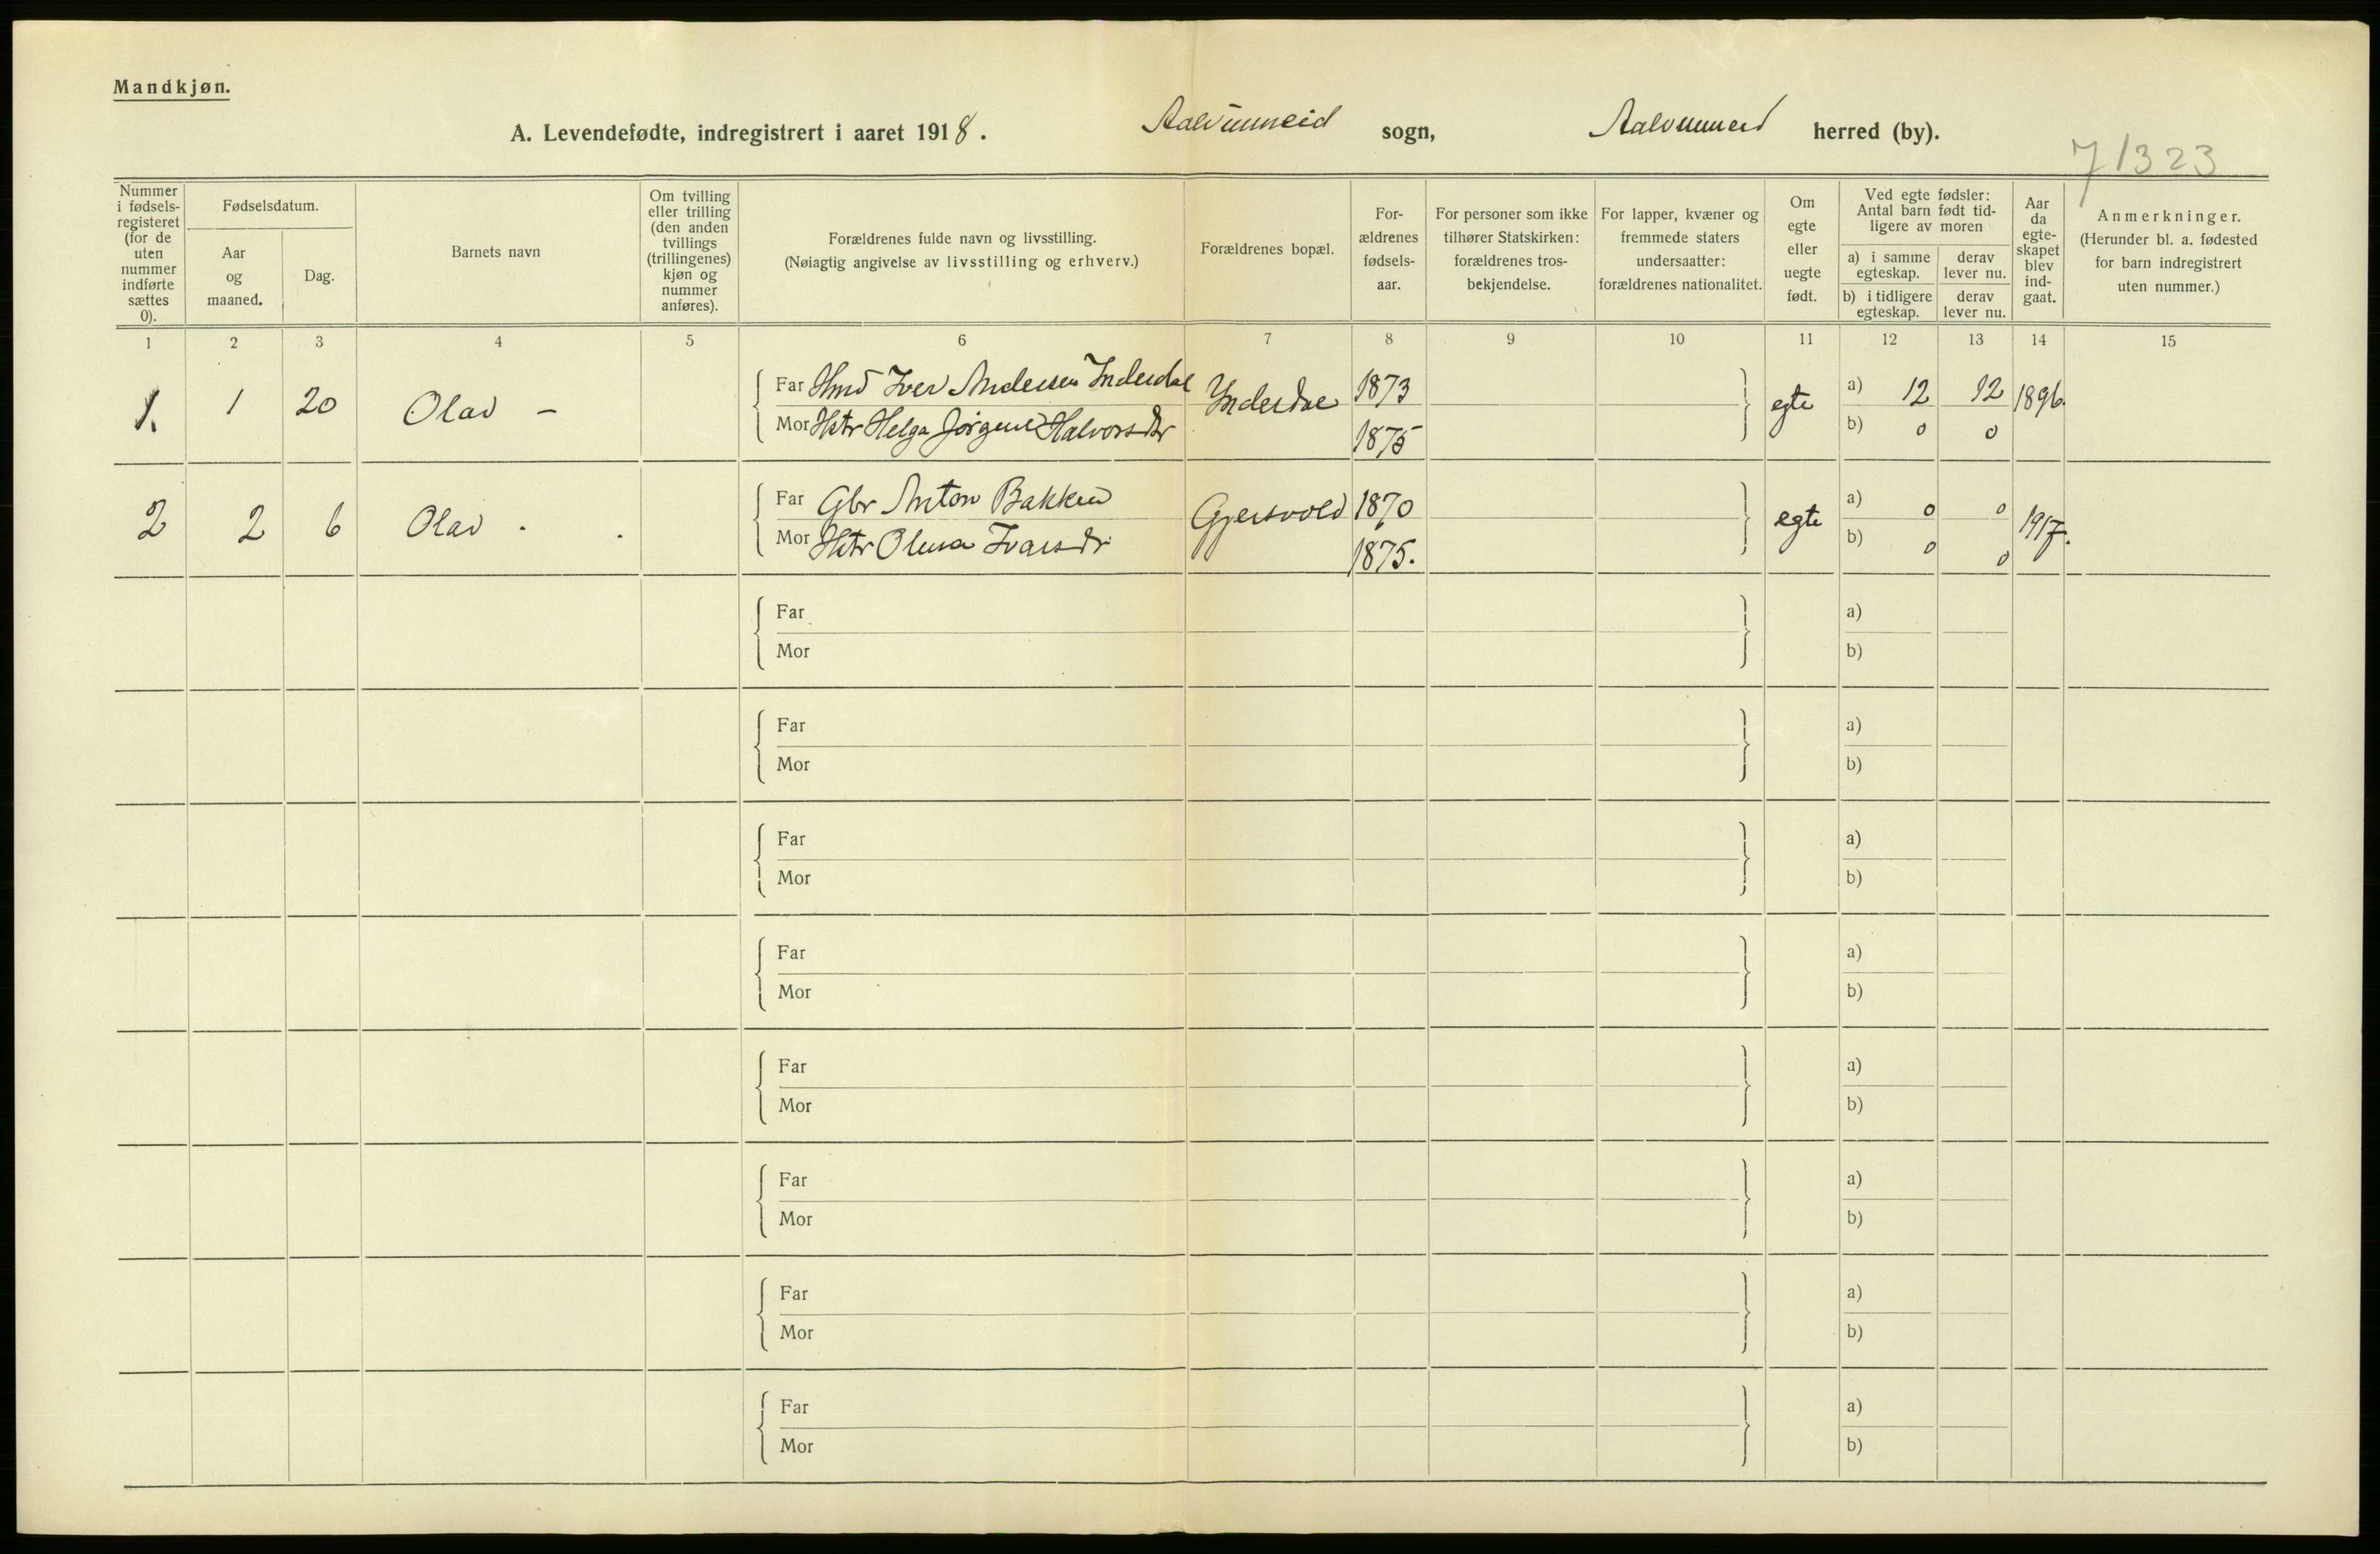 Mandkjøn.
A. Levendefødte, indregistrert i aaret 1918. Aalvunneid sogn, Aalvunneid herred (by).
71323
Nummer i fødsels-registeret (for de uten nummer indførte sættes 0).
Fødselsdatum.
Aar og maaned.
Dag.
Barnets navn
Om tvilling eller trilling (den anden tvillings (trillingenes) kjøn og nummer anføres).
Forældrenes fulde navn og livsstilling.
(Nøiagtig angivelse av livsstilling og erhverv.)
Forældrenes bopæl.
For-ældrenes fødsels-aar.
For personer som ikke tilhører Statskirken: forældrenes tros-bekjendelse.
For lapper, kvæner og fremmede staters undersaatter: forældrenes nationalitet.
Om egte eller uegte født.
Ved egte fødsler: Antal barn født tid-ligere av moren
a) i samme egteskap.
derav lever nu.
b) i tidligere egteskap.
derav lever nu.
Aar da egte-skapet blev ind-gaat.
Anmerkninger.
(Herunder bl. a. fødested for barn indregistrert uten nummer.)
1 2 3 4 5 6 7 8 9 10 11 12 13 14 15
1. 1 20 Olav – Far Hmd Iver Andersen Inderdal Inderdal 1873 egte a) 12 12 1896.
Mor Hstr Helga Jørgine Halvorsdtr 1875 b) 0 0
2 2 6 Olav . Far Gbr Anton Bakken Gjersvold 1870 egte a) 0 0 1917.
Mor Hstr Olena Ivarsdr 1875. b) 0 0
Far a)
Mor b)
Far a)
Mor b)
Far a)
Mor b)
Far a)
Mor b)
Far a)
Mor b)
Far a)
Mor b)
Far a)
Mor b)
Far a)
Mor b)